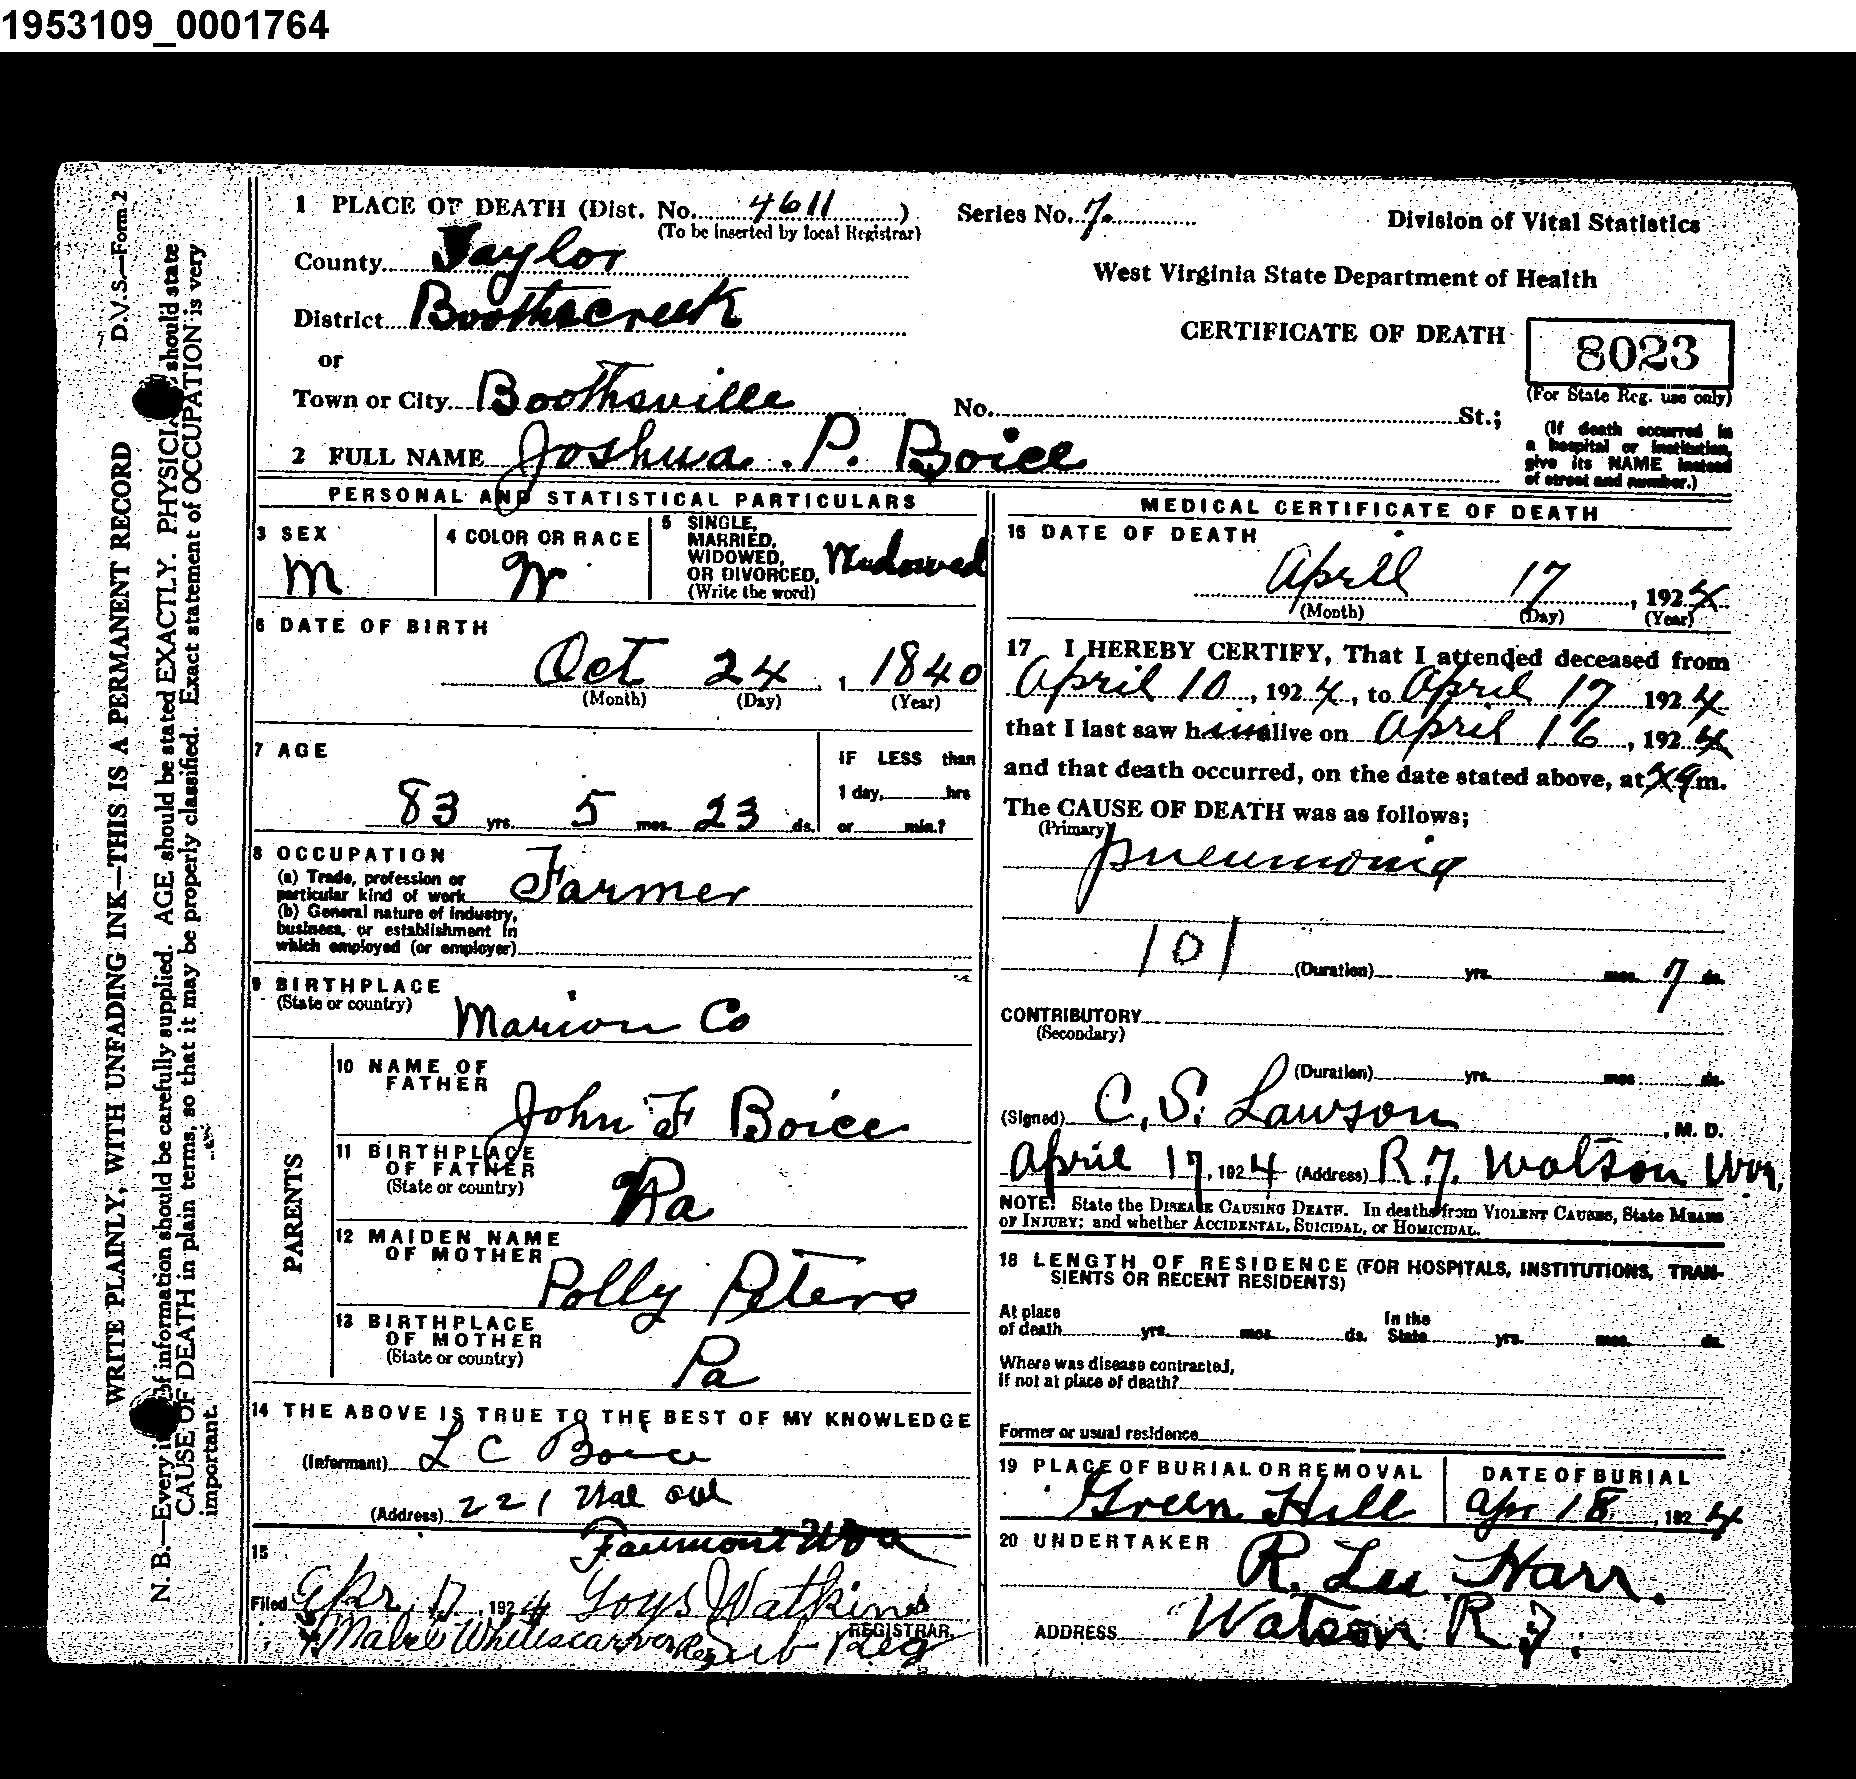 1953109_0001764
1 PLACE OF DEATH (Dist. No. 4611)
(To be inserted by local Registrar)
Series No. 7.
Division of Vital Statistics
County Taylor
West Virginia State Department of Health
District Boothscreek
CERTIFICATE OF DEATH
8023
(For State Reg. use only)
or
Town or City Boothsville
No. St.;
(If death occurred in
a hospital or institution,
give its NAME instead
of street and number.)
2 FULL NAME Joshua. P. Boice
PERSONAL AND STATISTICAL PARTICULARS
3 SEX
M
4 COLOR OR RACE
W
5 SINGLE,
MARRIED,
WIDOWED,
OR DIVORCED,
(Write the word)
Widowed
6 DATE OF BIRTH
Oct 24, 1840
(Month) (Day) (Year)
7 AGE
83 yrs. 5 mos. 23 ds.
IF LESS than
1 day, hrs
or min.?
8 OCCUPATION
(a) Trade, profession or
particular kind of work Farmer
(b) General nature of industry,
business, or establishment in
which employed (or employer)
9 BIRTHPLACE
(State or country) Marion Co
PARENTS
10 NAME OF
FATHER
John F Boice
11 BIRTHPLACE
OF FATHER
(State or country)
Pa
12 MAIDEN NAME
OF MOTHER
Polly Peters
13 BIRTHPLACE
OF MOTHER
(State or country)
Pa
14 THE ABOVE IS TRUE TO THE BEST OF MY KNOWLEDGE
(Informant) L C Boice
(Address) 221
Fairmont W Va
15
Filed Apr. 17, 1924 Watkins
REGISTRAR.
Mabel Whitescarver Reg Sub Reg
MEDICAL CERTIFICATE OF DEATH
16 DATE OF DEATH
April 17, 1924
(Month) (Day) (Year)
17 I HEREBY CERTIFY, That I attended deceased from
April 10, 1924, to April 17 1924
that I last saw him alive on April 16, 1924
and that death occurred, on the date stated above, at m.
The CAUSE OF DEATH was as follows;
(Primary)
pneumonia
101 (Duration) yrs. mos. 7 ds.
CONTRIBUTORY
(Secondary)
(Duration) yrs. mos. ds.
(Signed) C. S. Lawson, M. D.
April 17, 1924 (Address) R.7. Watson
NOTE: State the DISEASE CAUSING DEATH. In deaths from VIOLENT CAUSES, State MEANS
OF INJURY; and whether ACCIDENTAL, SUICIDAL, or HOMICIDAL.
18 LENGTH OF RESIDENCE (FOR HOSPITALS, INSTITUTIONS, TRAN-
SIENTS OR RECENT RESIDENTS)
At place
of death yrs. mos. ds.
In the
State yrs. mos. ds.
Where was disease contracted,
if not at place of death?
Former or usual residence
19 PLACE OF BURIAL OR REMOVAL
Green Hill
DATE OF BURIAL
Apr 18, 1924
20 UNDERTAKER
R. Lee Harr.
ADDRESS Watson R 7.
D.V.S.—Form 2
WRITE PLAINLY, WITH UNFADING INK—THIS IS A PERMANENT RECORD
N. B.—Every of information should be carefully supplied. AGE should be stated EXACTLY. PHYSICIA should state
CAUSE OF DEATH in plain terms, so that it may be properly classified. Exact statement of OCCUPATION is very
important.